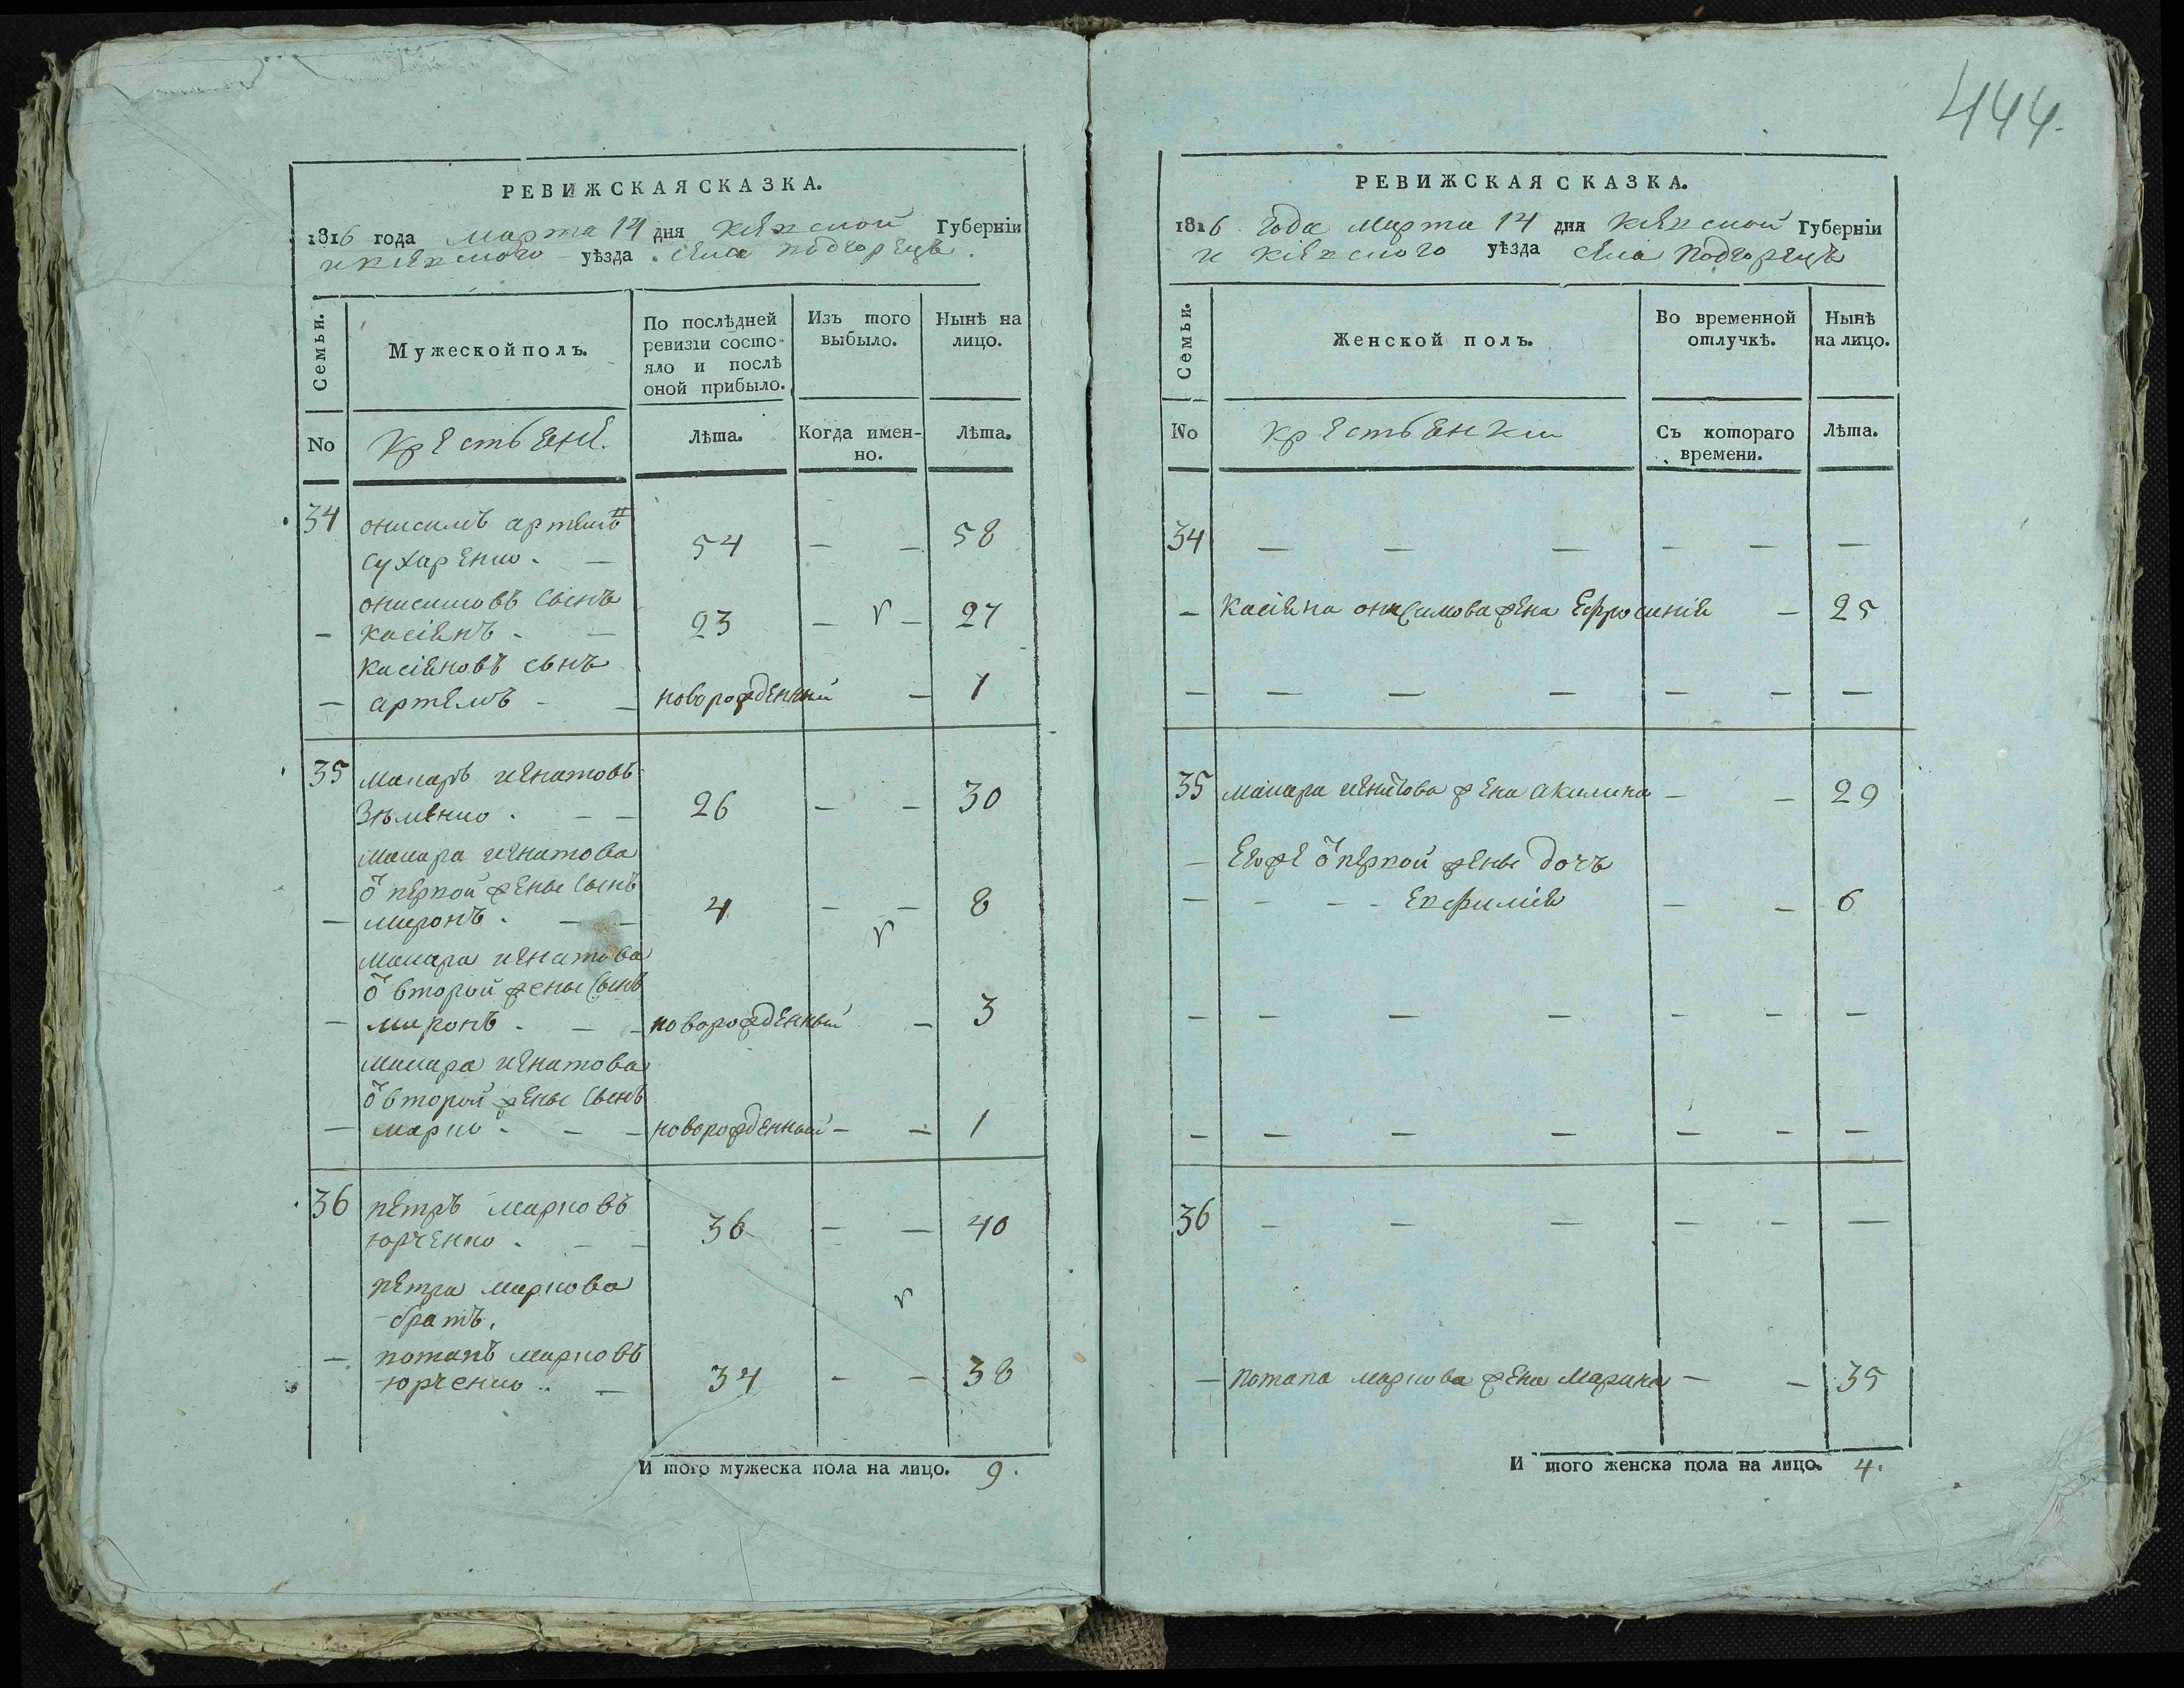 444.
РЕВИЖСКАЯ СКАЗКА.
1816 года марта 14 дня кіевской Губерніи
и кіевского уѣзда села подгорецъ
Семьи.
Мужеской полъ.
По послѣдней ревизіи состояло и послѣ оной прибыло.
Изъ того выбыло.
Нынѣ на лицо.
No
крестьяне.
Лѣта.
Когда именно.
Лѣта.
34 онисимъ артемъ
сухаренко. — 54 — — 58
онисимовъ сынъ
— касіянъ. — 23 — — 27
касіяновъ сынъ
— артемъ — — новорожденный — 1
35 макаръ игнатовъ
Зѣменко. — — 26 — — 30
макара игнатова
ѿ первой жены сынъ
— миронъ. — — 4 — — 8
макара игнатова
ѿ второй жены сынъ
— миронъ. — — новорожденный — 3
макара игнатова
ѿ второй жены сынъ
— марко. — — новорожденный — — 1
36 петръ марковъ
юрченко. — — 36 — — 40
петра маркова
братъ.
— потапъ марковъ
юрченко.. — 34 — — 38
И того мужеска пола на лицо. 9.
РЕВИЖСКАЯ СКАЗКА.
1816. года марта 14 дня кіевской Губерніи
и кіевского уѣзда села подгорецъ
Семьи.
Женской полъ.
Во временной отлучкѣ.
Нынѣ на лицо.
No
крестьянки
Съ котораго времени.
Лѣта.
34 — — — — — —
— касіяна онисимова жена Ефросинія — 25
— — — — — — —
35 макара игнатова жена акилина — — 29
— Егоже ѿ первой жены дочъ
— — — — Евфимія — — 6
— — — — — — —
— — — — — — —
36 — — — — — —
— потапа маркова жена марина — — 35
И того женска пола на лицо. 4.